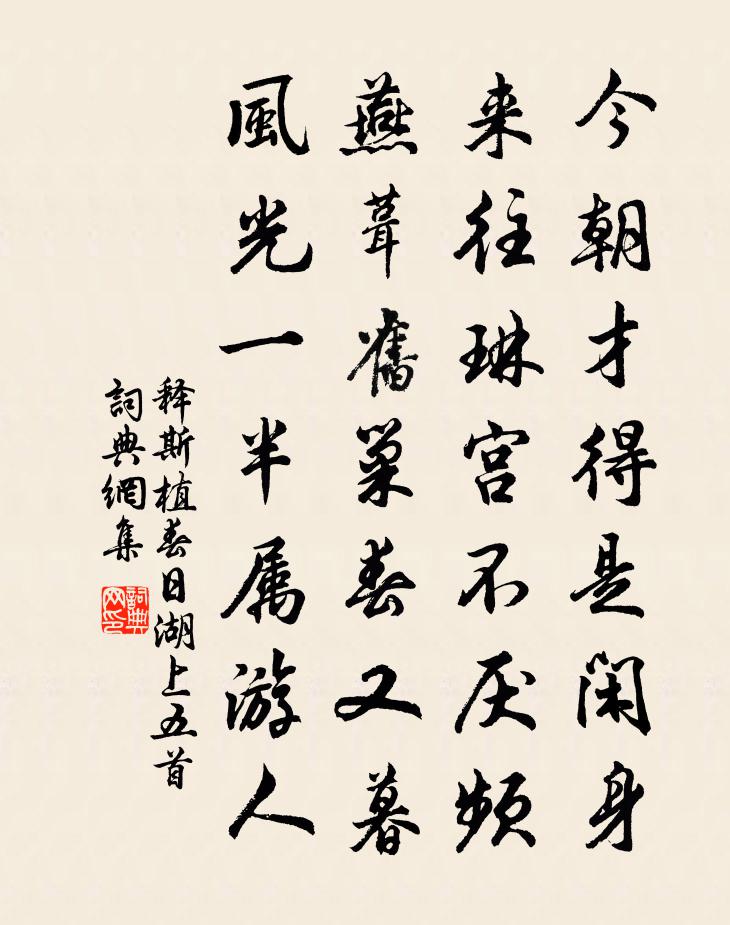 今朝才得是闲身
来往琳宫不厌频
燕葺舊巢春又暮
風光一半属游人
释斯植春日湖上五首
詞典網集
詞典网印